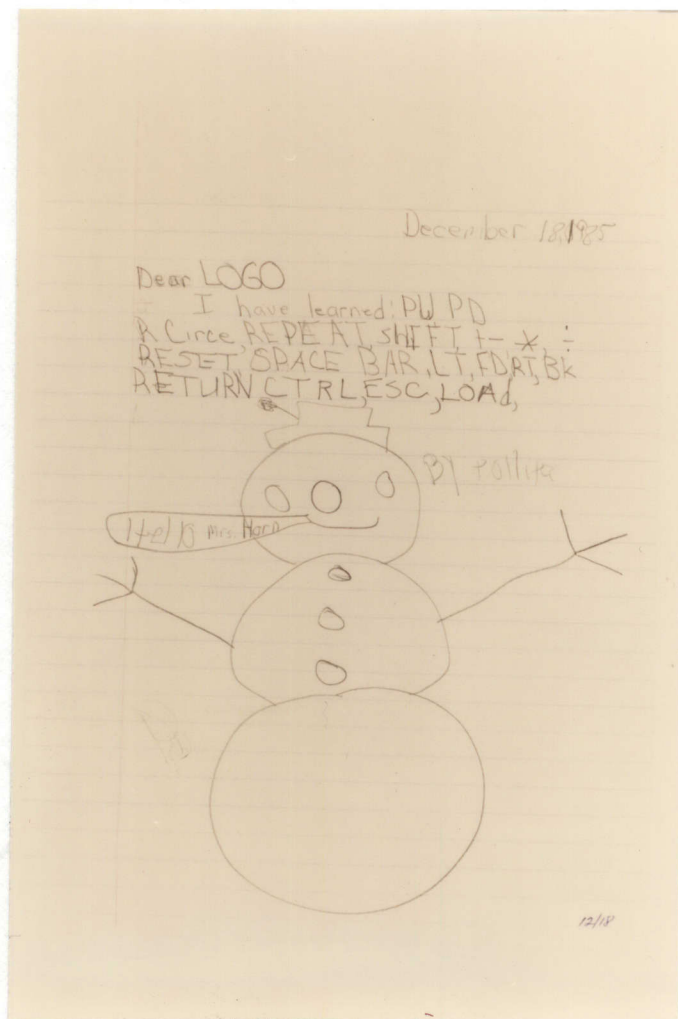 December 18, 1985
Dear LOGO
I have learned: PU PD
R Circe, REPEAT, SHIFT + - *, ÷
RESET, SPACE BAR, LT, FD, RT, Bk
RETURN, CTRL, ESC, LOAd,
BY
Mrs. Horn
12/18